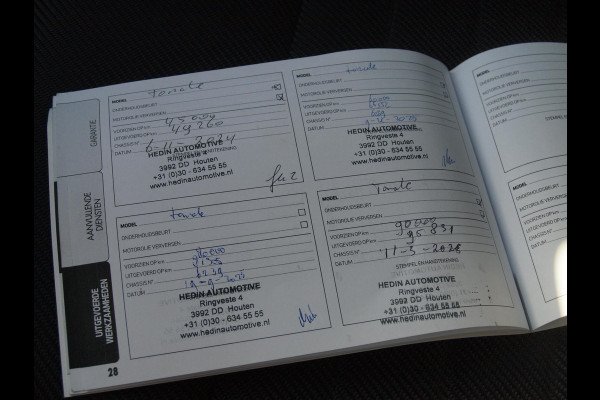 GARANTIE
AANVULLENDE
DIENSTEN
UITGEVOERDE
WERKZAAMHEDEN
28
MODEL tonale
ONDERHOUDSBEURT
MOTOROLIE VERVERSEN
VOORZIEN OP km 45000
UITGEVOERD OP km 49260
CHASSIS N°
DATUM 6-11-2024
HEDIN AUTOMOTIVE
Ringveste 4
3992 DD Houten
+31 (0)30 - 634 55 55
www.hedinautomotive.nl
MODEL tonale
ONDERHOUDSBEURT
MOTOROLIE VERVERSEN
VOORZIEN OP km
UITGEVOERD OP km
CHASSIS N°
DATUM
HEDIN AUTOMOTIVE
Ringveste 4
3992 DD Houten
+31 (0)30 - 634 55 55
www.hedinautomotive.nl
MODEL tonale
ONDERHOUDSBEURT
MOTOROLIE VERVERSEN
VOORZIEN OP km
UITGEVOERD OP km
CHASSIS N°
DATUM 19-9-2025
HEDIN AUTOMOTIVE
Ringveste 4
3992 DD Houten
+31 (0)30 - 634 55 55
www.hedinautomotive.nl
MODEL Tonale
ONDERHOUDSBEURT
MOTOROLIE VERVERSEN
VOORZIEN OP km 90000
UITGEVOERD OP km 95.831
CHASSIS N°
DATUM 11-3-2026
STEMPEL EN HANDTEKENING
HEDIN AUTOMOTIVE
Ringveste 4
3992 DD Houten
+31 (0)30 - 634 55 55
www.hedinautomotive.nl
MODEL
ONDERHOUDSBEURT
MOTOROLIE VERVERSEN
VOORZIEN OP km
UITGEVOERD OP km
CHASSIS N°
DATUM
MODEL
ONDERHOUDSBEURT
MOTOROLIE VERVERSEN
VOORZIEN OP km
UITGEVOERD OP km
CHASSIS N°
DATUM